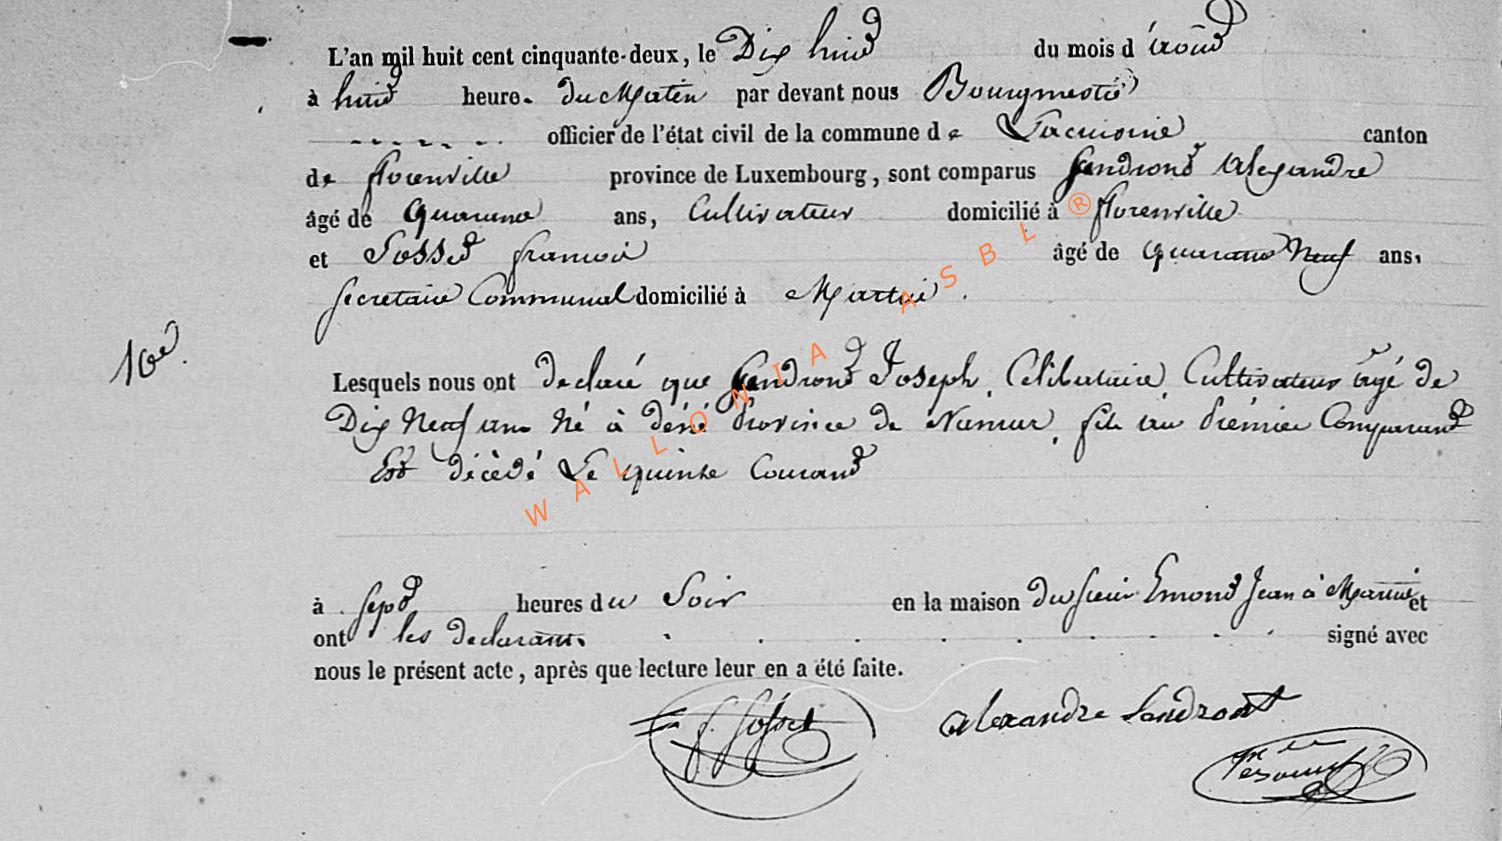 L'an mil huit cent cinquante-deux, le Dix huit du mois d'août
à huit heure. du Matin par devant nous Bourgmestre
officier de l'état civil de la commune de Lacuisine canton
de florenville province de Luxembourg, sont comparus Alexandre
âgé de quarante ans, Cultivateur domicilié à florenville
et françois âgé de quarante Neuf ans,
secretaire Communal domicilié à Martué.
10e.
Lesquels nous ont declaré que Joseph, Célibataire Cultivateur âgé de
Dix Neuf ans Né à déné Province de Namur, fils du Premier Comparant
Est décédé Le quinze Courant
à sept heures du Soir en la maison du sieur Emond Jean à Martué et
ont les declarants signé avec
nous le présent acte, après que lecture leur en a été faite.
Alexandre
WALLONIA ASBL ®